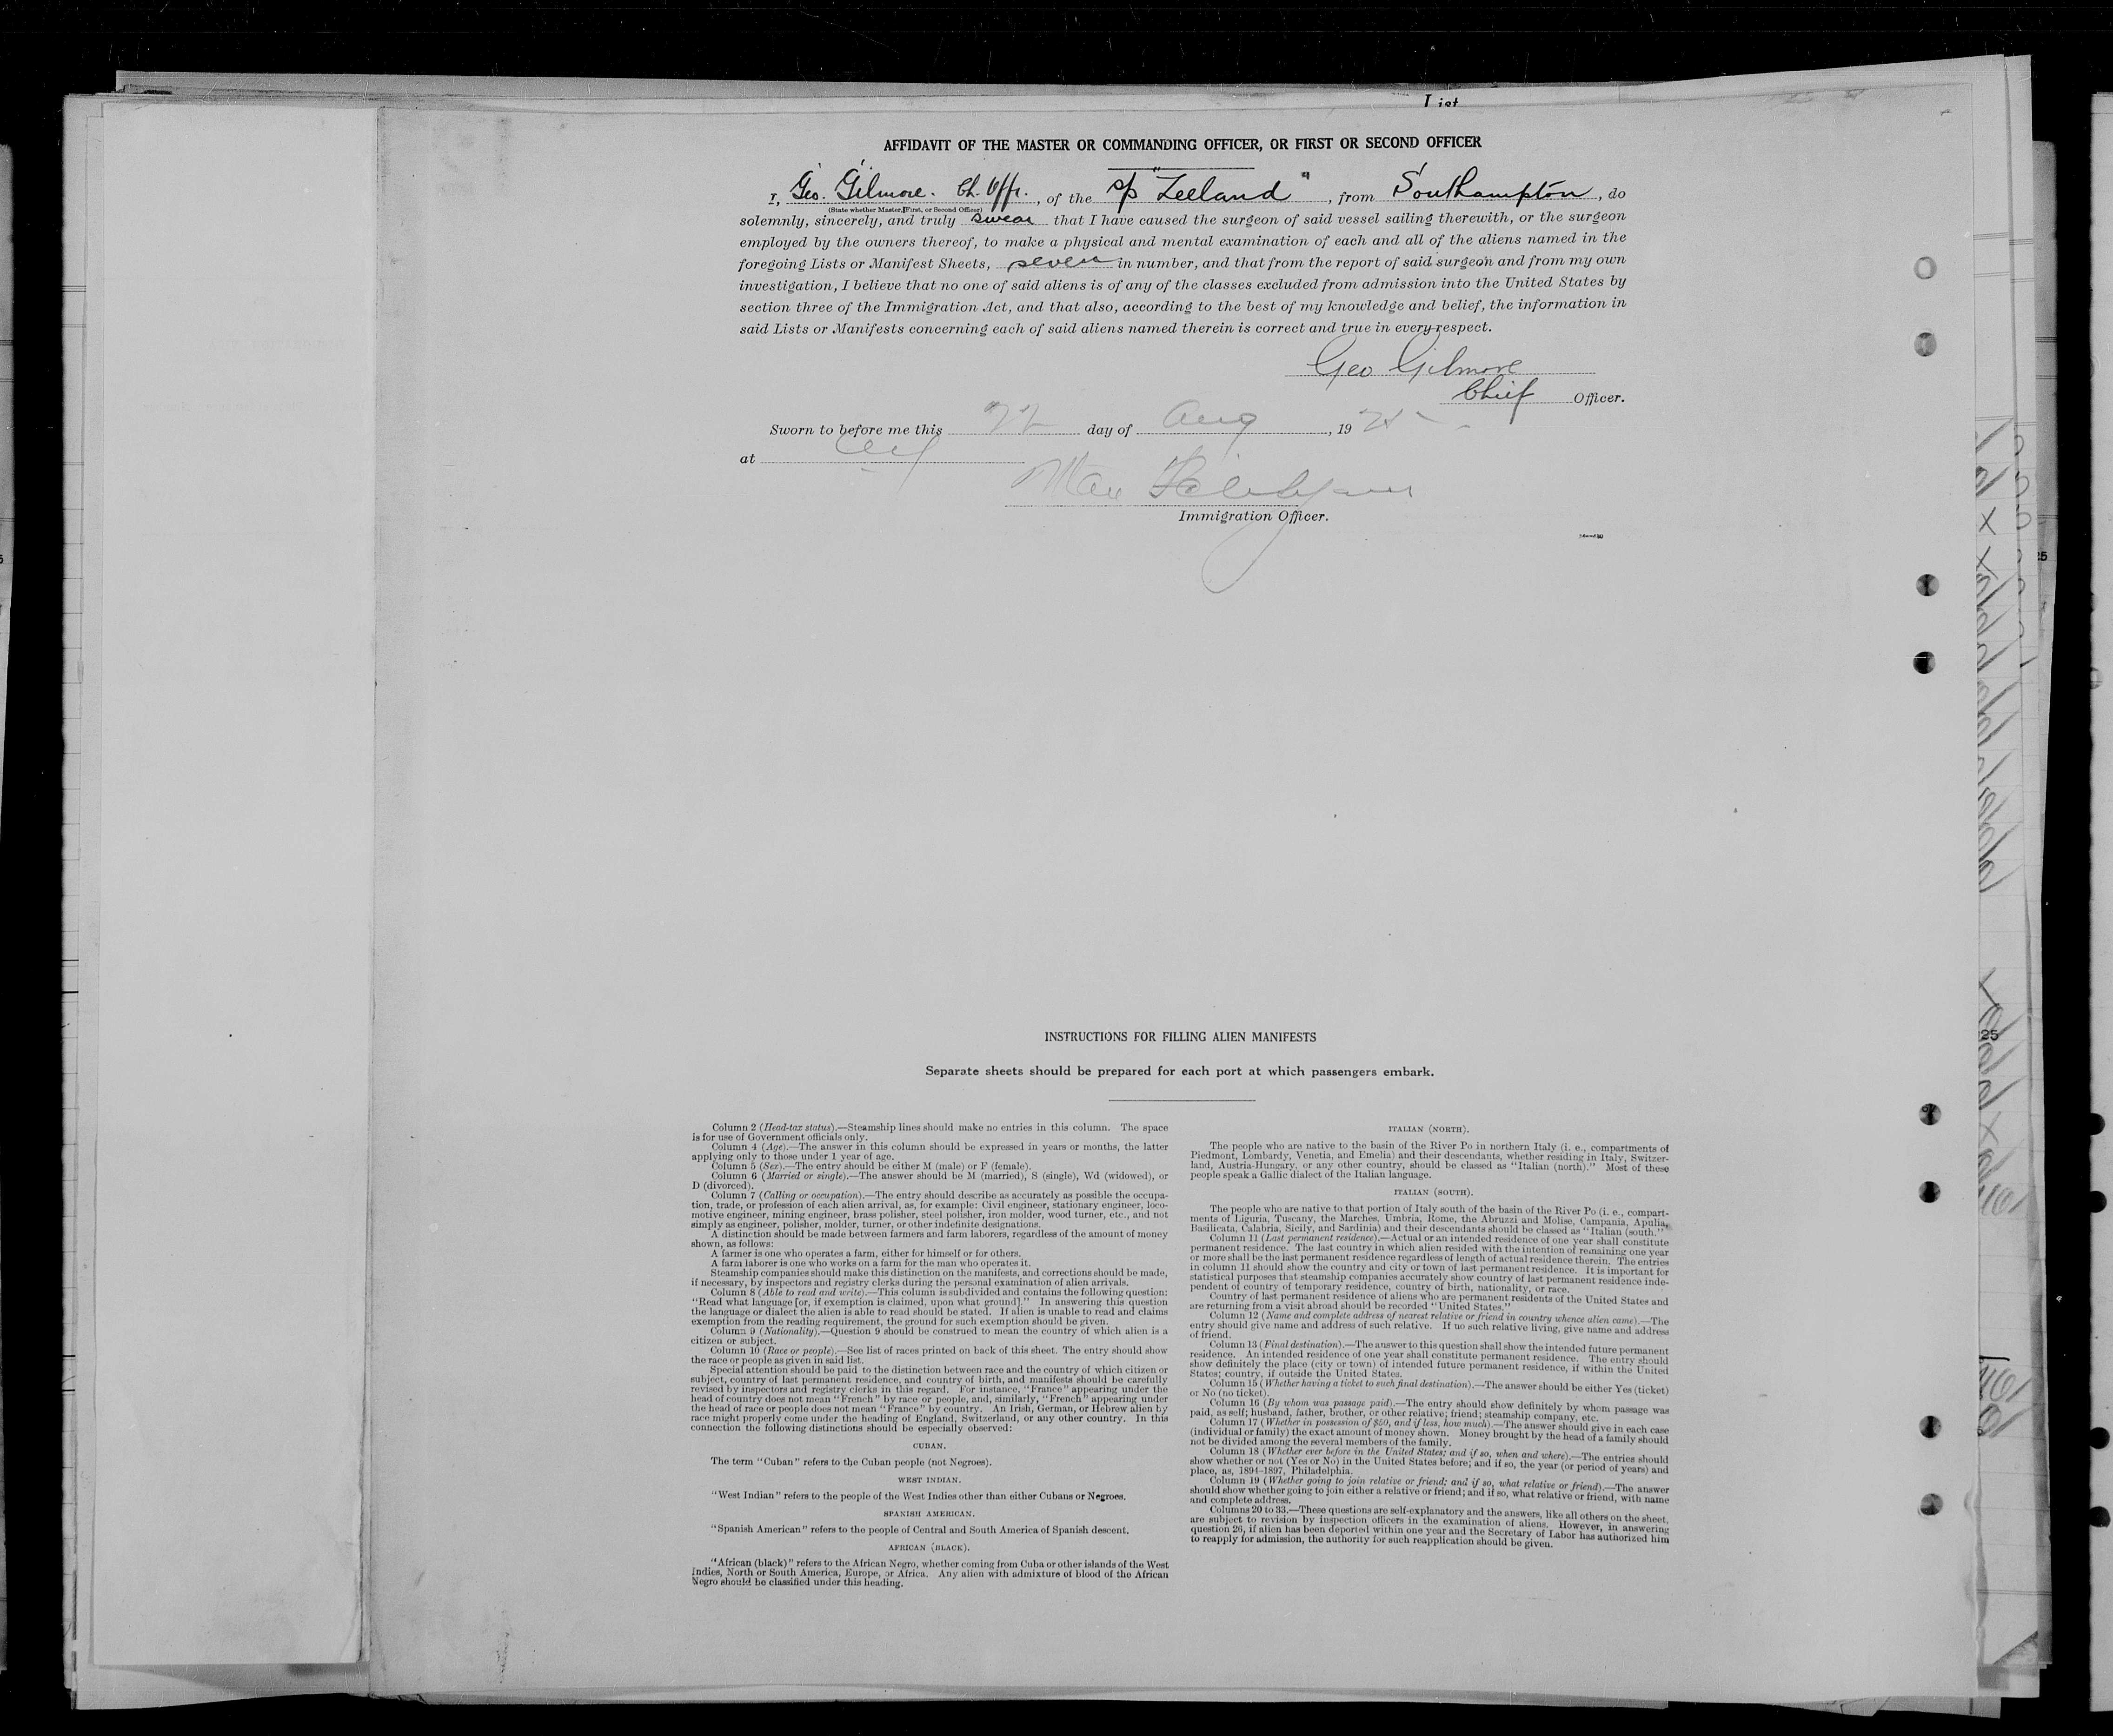 List
AFFIDAVIT OF THE MASTER OR COMMANDING OFFICER, OR FIRST OR SECOND OFFICER
I, Geo. Gilmore. Ch. Offr. , of the s/s "Zeeland" , from Southampton , do
(State whether Master, First, or Second Officer)
solemnly, sincerely, and truly swear that I have caused the surgeon of said vessel sailing therewith, or the surgeon
employed by the owners thereof, to make a physical and mental examination of each and all of the aliens named in the
foregoing Lists or Manifest Sheets, seven in number, and that from the report of said surgeon and from my own
investigation, I believe that no one of said aliens is of any of the classes excluded from admission into the United States by
section three of the Immigration Act, and that also, according to the best of my knowledge and belief, the information in
said Lists or Manifests concerning each of said aliens named therein is correct and true in every respect.
Geo Gilmore
Chief Officer.
Sworn to before me this 22 day of Aug , 19 25
at
Max
Immigration Officer.
INSTRUCTIONS FOR FILLING ALIEN MANIFESTS
Separate sheets should be prepared for each port at which passengers embark.
Column 2 (Head-tax status).—Steamship lines should make no entries in this column. The space
is for use of Government officials only.
Column 4 (Age).—The answer in this column should be expressed in years or months, the latter
applying only to those under 1 year of age.
Column 5 (Sex).—The entry should be either M (male) or F (female).
Column 6 (Married or single).—The answer should be M (married), S (single), Wd (widowed), or
D (divorced).
Column 7 (Calling or occupation).—The entry should describe as accurately as possible the occupa-
tion, trade, or profession of each alien arrival, as, for example: Civil engineer, stationary engineer, loco-
motive engineer, mining engineer, brass polisher, steel polisher, iron molder, wood turner, etc., and not
simply as engineer, polisher, molder, turner, or other indefinite designations.
A distinction should be made between farmers and farm laborers, regardless of the amount of money
shown, as follows:
A farmer is one who operates a farm, either for himself or for others.
A farm laborer is one who works on a farm for the man who operates it.
Steamship companies should make this distinction on the manifests, and corrections should be made,
if necessary, by inspectors and registry clerks during the personal examination of alien arrivals.
Column 8 (Able to read and write).—This column is subdivided and contains the following question:
"Read what language [or, if exemption is claimed, upon what ground]." In answering this question
the language or dialect the alien is able to read should be stated. If alien is unable to read and claims
exemption from the reading requirement, the ground for such exemption should be given.
Column 9 (Nationality).—Question 9 should be construed to mean the country of which alien is a
citizen or subject.
Column 10 (Race or people).—See list of races printed on back of this sheet. The entry should show
the race or people as given in said list.
Special attention should be paid to the distinction between race and the country of which citizen or
subject, country of last permanent residence, and country of birth, and manifests should be carefully
revised by inspectors and registry clerks in this regard. For instance, "France" appearing under the
head of country does not mean "French" by race or people, and, similarly, "French" appearing under
the head of race or people does not mean "France" by country. An Irish, German, or Hebrew alien by
race might properly come under the heading of England, Switzerland, or any other country. In this
connection the following distinctions should be especially observed:
CUBAN.
The term "Cuban" refers to the Cuban people (not Negroes).
WEST INDIAN.
"West Indian" refers to the people of the West Indies other than either Cubans or Negroes.
SPANISH AMERICAN.
"Spanish American" refers to the people of Central and South America of Spanish descent.
AFRICAN (BLACK).
"African (black)" refers to the African Negro, whether coming from Cuba or other islands of the West
Indies, North or South America, Europe, or Africa. Any alien with admixture of blood of the African
Negro should be classified under this heading.
ITALIAN (NORTH).
The people who are native to the basin of the River Po in northern Italy (i. e., compartments of
Piedmont, Lombardy, Venetia, and Emelia) and their descendants, whether residing in Italy, Switzer-
land, Austria-Hungary, or any other country, should be classed as "Italian (north)." Most of these
people speak a Gallic dialect of the Italian language.
ITALIAN (SOUTH).
The people who are native to that portion of Italy south of the basin of the River Po (i. e., compart-
ments of Liguria, Tuscany, the Marches, Umbria, Rome, the Abruzzi and Molise, Campania, Apulia,
Basilicata, Calabria, Sicily, and Sardinia) and their descendants should be classed as "Italian (south."
Column 11 (Last permanent residence).—Actual or an intended residence of one year shall constitute
permanent residence. The last country in which alien resided with the intention of remaining one year
or more shall be the last permanent residence regardless of length of actual residence therein. The entries
in column 11 should show the country and city or town of last permanent residence. It is important for
statistical purposes that steamship companies accurately show country of last permanent residence inde-
pendent of country of temporary residence, country of birth, nationality, or race.
Country of last permanent residence of aliens who are permanent residents of the United States and
are returning from a visit abroad should be recorded "United States."
Column 12 (Name and complete address of nearest relative or friend in country whence alien came).—The
entry should give name and address of such relative. If no such relative living, give name and address
of friend.
Column 13 (Final destination).—The answer to this question shall show the intended future permanent
residence. An intended residence of one year shall constitute permanent residence. The entry should
show definitely the place (city or town) of intended future permanent residence, if within the United
States; country, if outside the United States.
Column 15 (Whether having a ticket to such final destination).—The answer should be either Yes (ticket)
or No (no ticket).
Column 16 (By whom was passage paid).—The entry should show definitely by whom passage was
paid, as self; husband, father, brother, or other relative; friend; steamship company, etc.
Column 17 (Whether in possession of $50, and if less, how much).—The answer should give in each case
(individual or family) the exact amount of money shown. Money brought by the head of a family should
not be divided among the several members of the family.
Column 18 (Whether ever before in the United States; and if so, when and where).—The entries should
show whether or not (Yes or No) in the United States before; and if so, the year (or period of years) and
place, as, 1894-1897, Philadelphia.
Column 19 (Whether going to join relative or friend; and if so, what relative or friend).—The answer
should show whether going to join either a relative or friend; and if so, what relative or friend, with name
and complete address.
Columns 20 to 33.—These questions are self-explanatory and the answers, like all others on the sheet,
are subject to revision by inspection officers in the examination of aliens. However, in answering
question 26, if alien has been deported within one year and the Secretary of Labor has authorized him
to reapply for admission, the authority for such reapplication should be given.
25
25